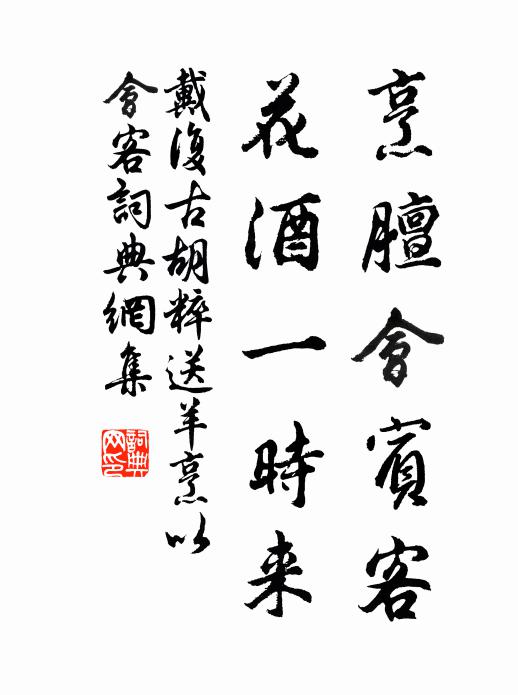 烹膻會賓客
花酒一時来
戴復古胡粹送羊烹以
會客詞典網集
詞典網印